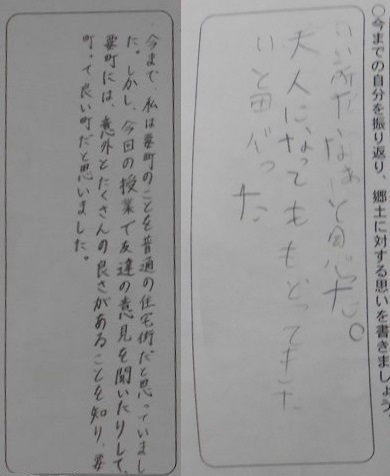 ○今までの自分を振り返り、郷土に対する思いを書きましょう。
いい所だなぁと思った。
大人になってももどってきた
いと思った
今まで、私は要町のことを普通の住宅街だと思っていまし
た。しかし、今日の授業で友達の意見を聞いたりして、
要町には、意外とたくさんの良さがあることを知り、要
町って良い町だと思いました。